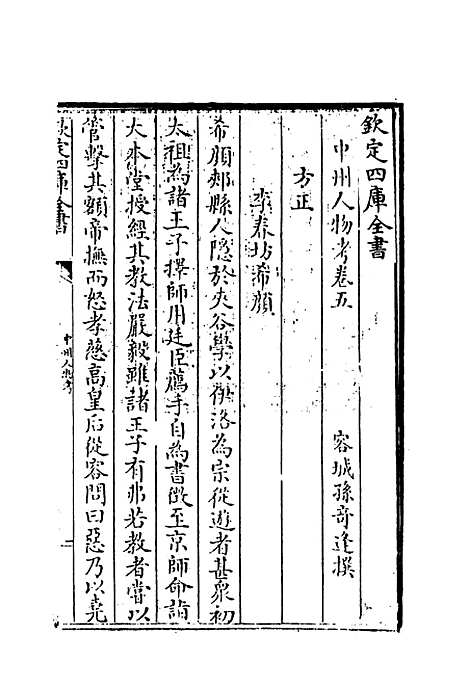 欽定四庫全書
中州人物考卷五
容城孫奇逢撰
方正
李春坊希顏
希顏郟縣人隱於夾谷學以伊洛為宗從遊者甚衆初
太祖為諸王子擇師用廷臣薦手自為書徵至京師命詣
大本堂授經其教法嚴毅雖諸王子有弗若教者嘗以
管擊其額帝撫而怒孝慈高皇后從容問曰惡乃以堯
欽定四庫全書
中州人物考